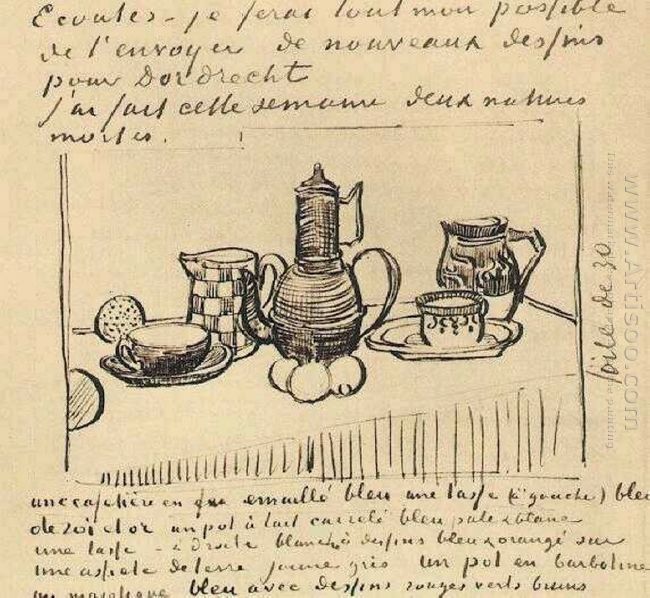 Ecoutes - je ferai tout mon possible
de t'envoyer de nouveaux dessins
pour Dordrecht
J'ai fait cette semaine deux natures
mortes.
toile de 30
www.Artisoo.com
une cafetière en fer emaillé bleu une tasse (à gauche) bleu
de roi et or un pot à lait carrelé bleu pale & blanc
une tasse - à droite blanche à dessins bleu & orangé sur
une assiete de terre jaune gris un pot en barbotine
ou majolique bleu avec dessins rouges verts bruns